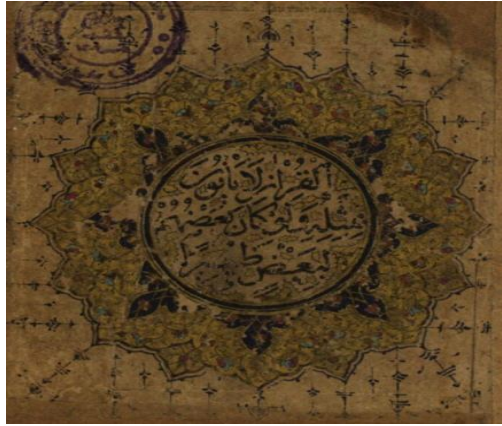 القرآن لا يأتون
بمثله ولو كان بعضهم
لبعض ظهيرا